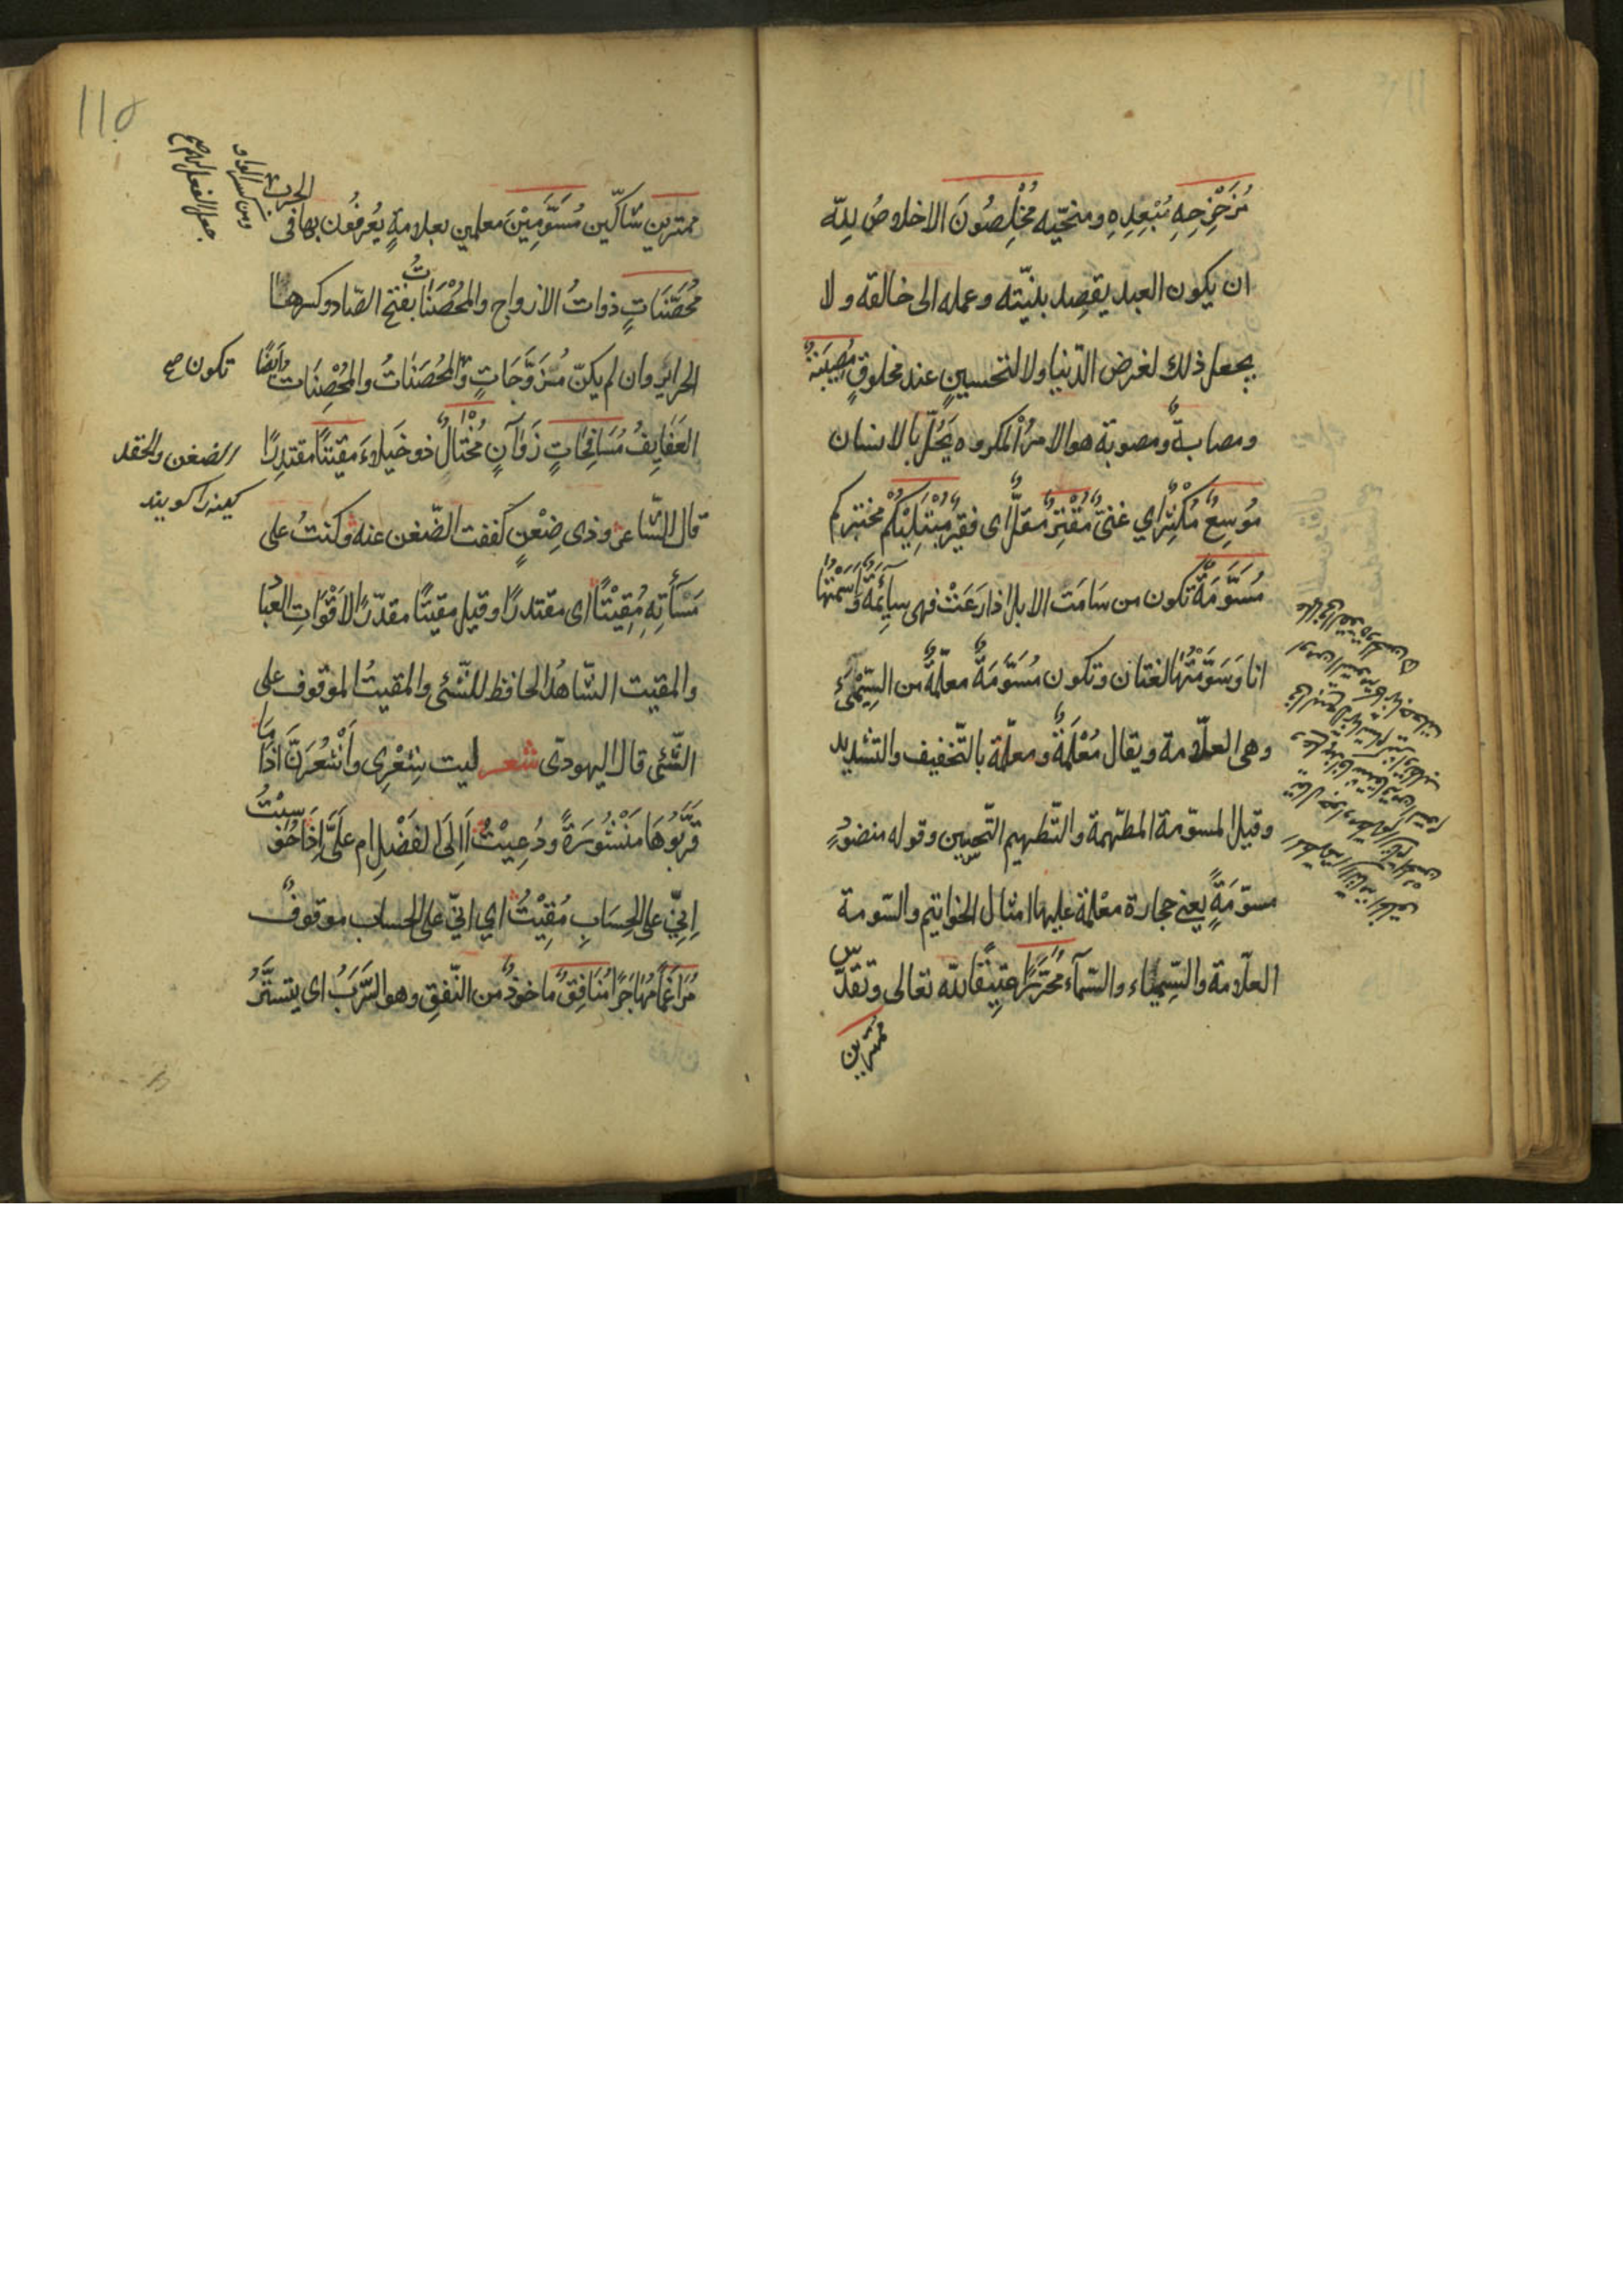 مُزَحْزِحِهِ مُبْعِدِهِ ومنحّيه مُخْلِصُونَ الاخلاصُ لِلّه
ان يكون العبد يقصد بنيّته وعمله الى خالقه ولا
يجعل ذلك لغرض الدّنيا ولا لتحسين عند مخلوقٍ مُصِيْبَةٌ
ومصابةٌ ومصوبة هو الامرُ المكروه يَحُلّ بالانسان
مُوسِعٌ مُكْثِرٌ اي غنىٌّ مُقْتِرٌ مُقلٌّ اى فقيرٌ مُبْتَلِيْكُمْ مختبركم
مُسَوَّمَةٌ تكون من سَامَت الابل اذا رَعَتْ فهى سَآئِمَةٌ وَاَسَمْتُهَا
انا وَسَوَّمْتُهَا لغتان وتكون مُسَوَّمَةٌ معلّمةٌ من السِيْمَىٰ
وهى العلامة ويقال مُعْلَمَةٌ ومعلّمة بالتّخفيف والتشديد
وقيل المسوّمة المطهّمة والتّطهيم التّحسين وقوله منضودٍ
مسوّمَةً يعنى حجارة معْلمة عليها امثال الخواتيم والسّومة
العلامة والسِّيْمَاء والسّيماء مُحَرَّرًا عتِيْقًا لله تعالى وتقدّس
ممترين
١١٥
ممترين شاكّين مُسَوَّمِيْنَ معلمين بعلامةٍ يُعْرفُون بها فى الحرب
ومن كسر الواو
جعل الفعل لهم صح
مُحْصَنَاتٍ ذواتُ الازواج والمُحْصَنَاتُ بفتح الصّاد وكسرها
الحراير وان لم يكنّ مُزَوَّجَاتٍ والمُحْصَنَاتُ والمُحْصِنَات وايضًا
تكون صح
العَفَايِفُ مُسَافِحَاتٍ زَوَانٍ مُخْتَالٌ ذو خُيَلاءَ مقيتًا مقتدِرًا
الضغن والحقد
كينه را كويند
قال الشّاعر وذى ضِغْنٍ كففت الضّغن عنه وكنتُ على
مَسْأَتِهِ مُقِيْتًا اى مقتدرًا وقيل مقيتًا مقدّرًا لاَقْوَاتِ العباد
والمقيت الشّاهدُ الحافظ للشّئ والمقيتُ الموقوف على
الشّئ قال اليهودى شعر ليت شِعْرِى وَاَشْعُرَنَّ اذا مَا
قَرَّبُوْهَا مَنْشُوْرَةً ودُعِيْتُ اَاِلَى الفَضْلِ ام عَلَىَّ اِذَا حُوْسِبْتُ
اِنِّيْ على الحِسَابِ مُقِيْتُ اي انّي على الحساب موقوفٌ
مُرَاغَمًا مُهَاجَرًا مُنَافِقٌ ماخوذٌ من النّفقِ وهو السَّرَبُ اى يتستّرُ